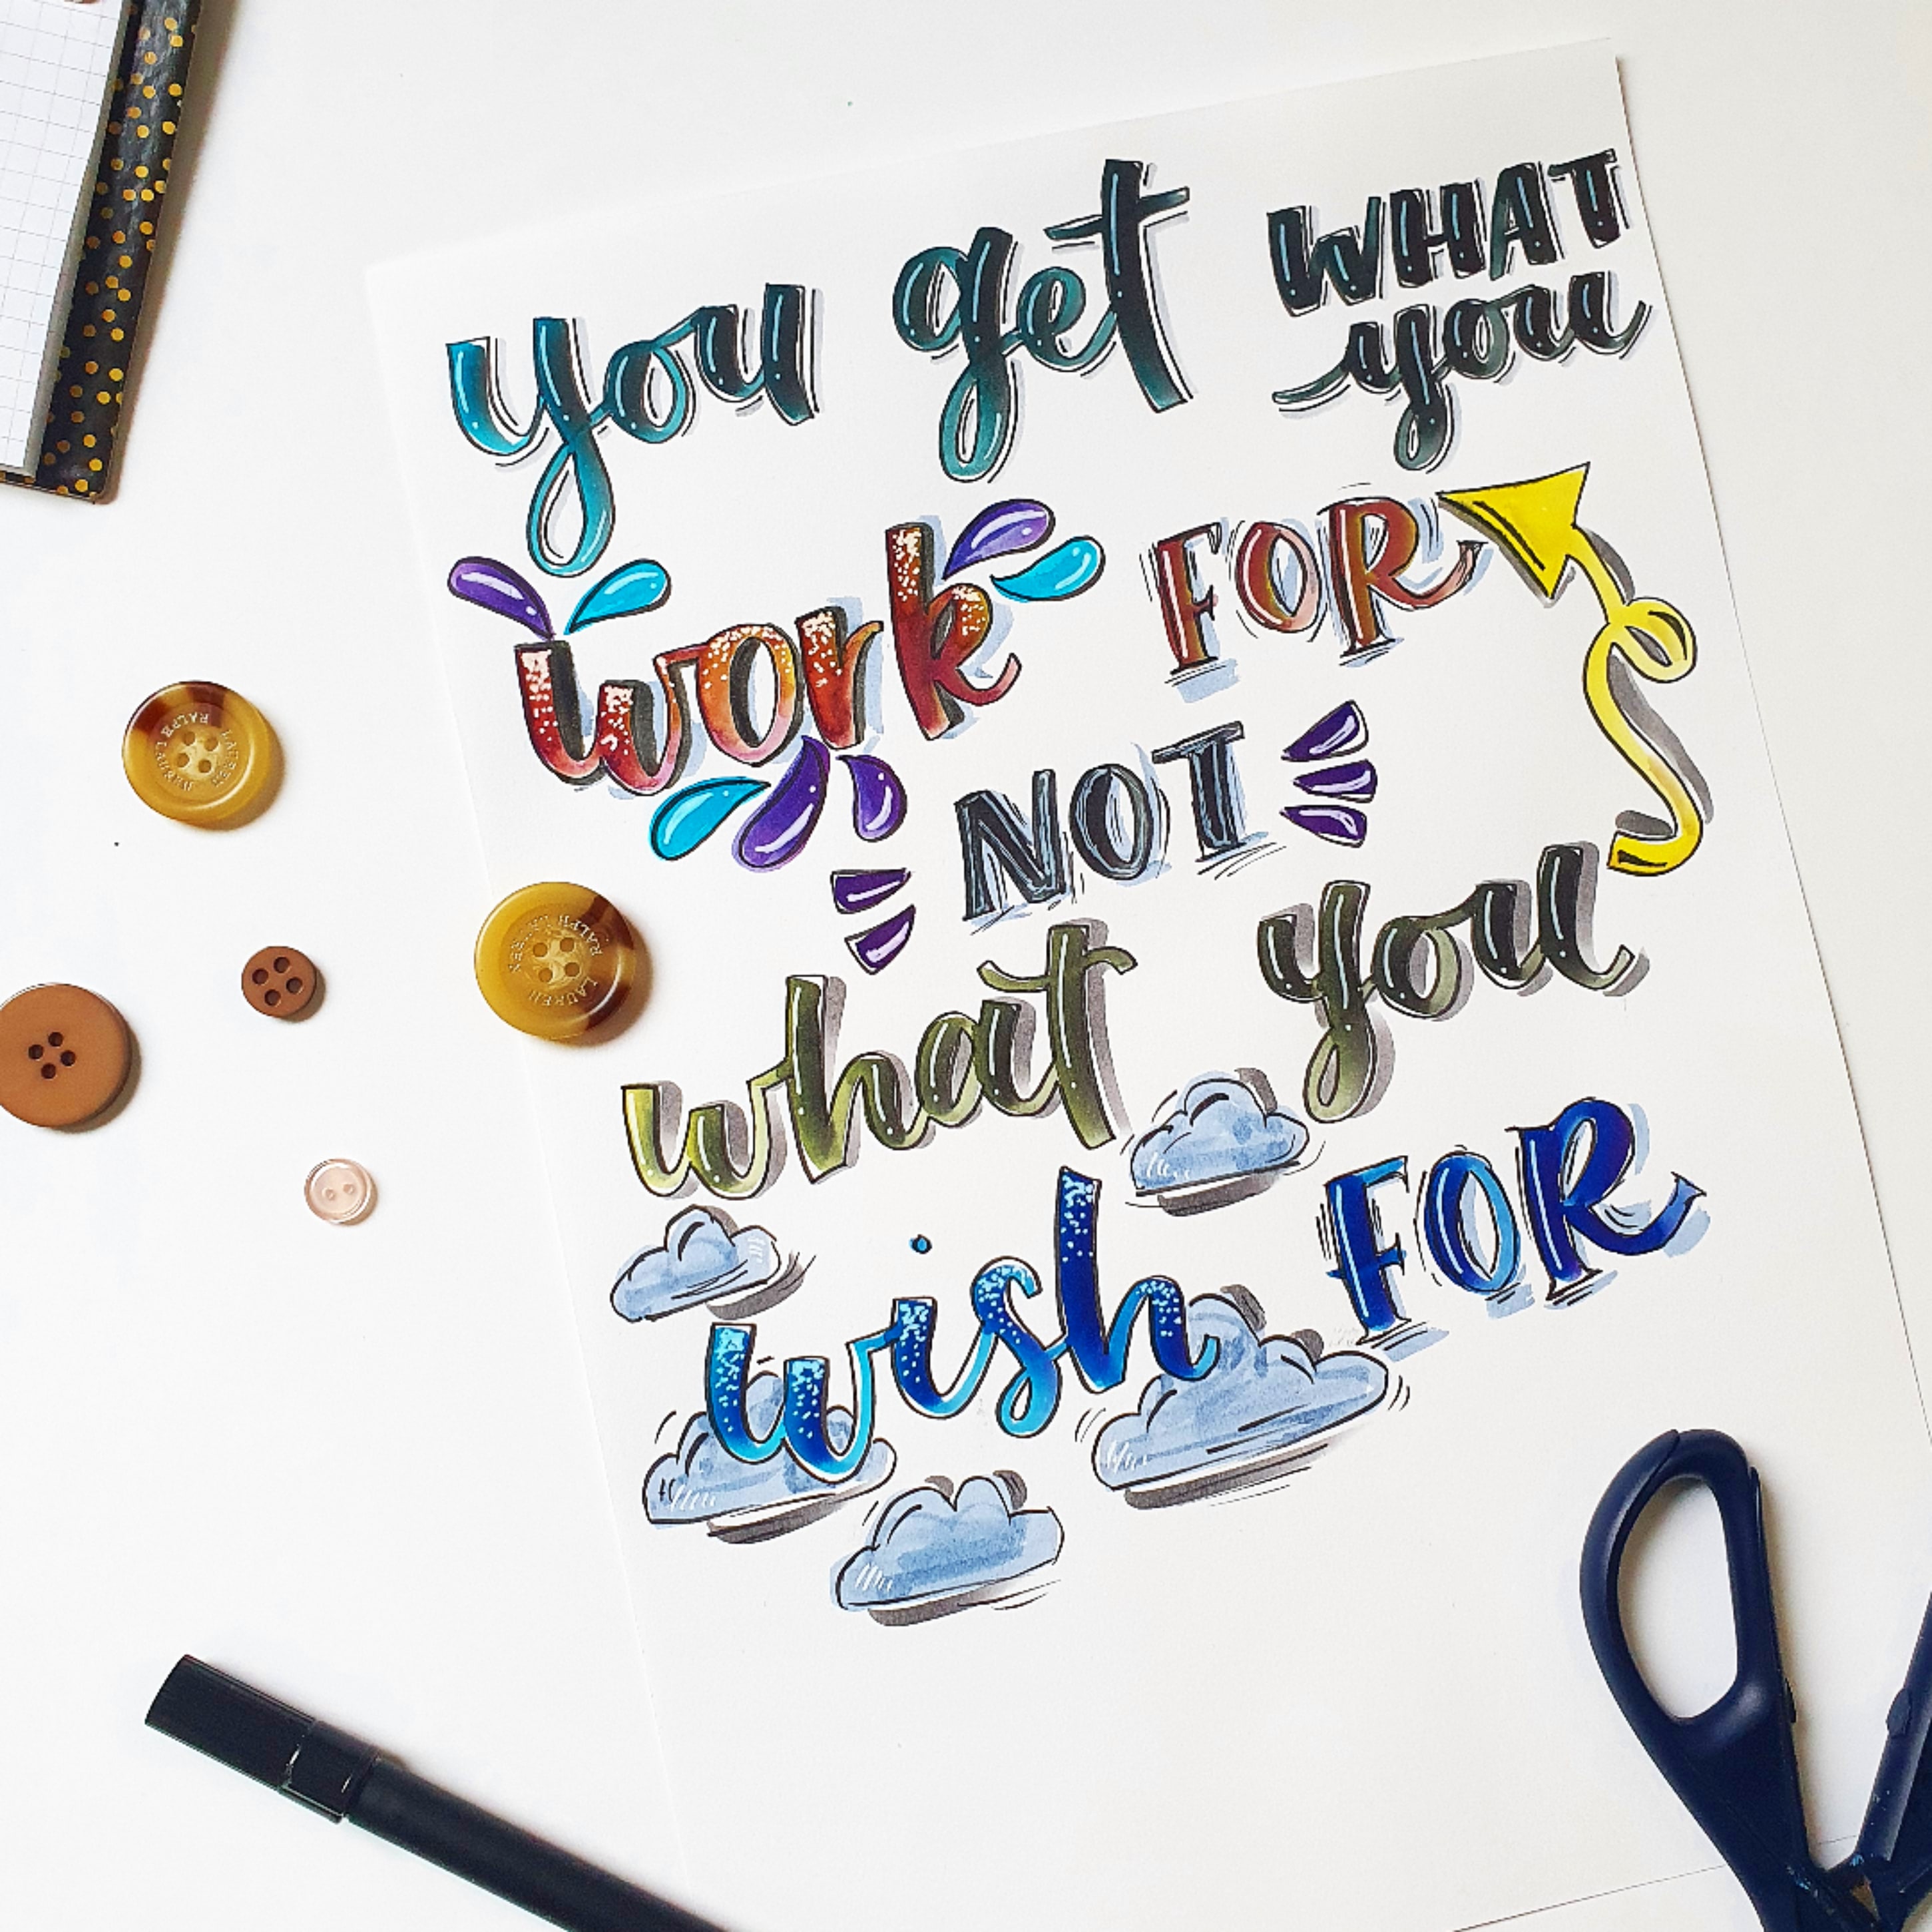 you get WHAT
you
work FOR
NOT
what you
wish FOR
RALPH LAUREN
RALPH LAUREN